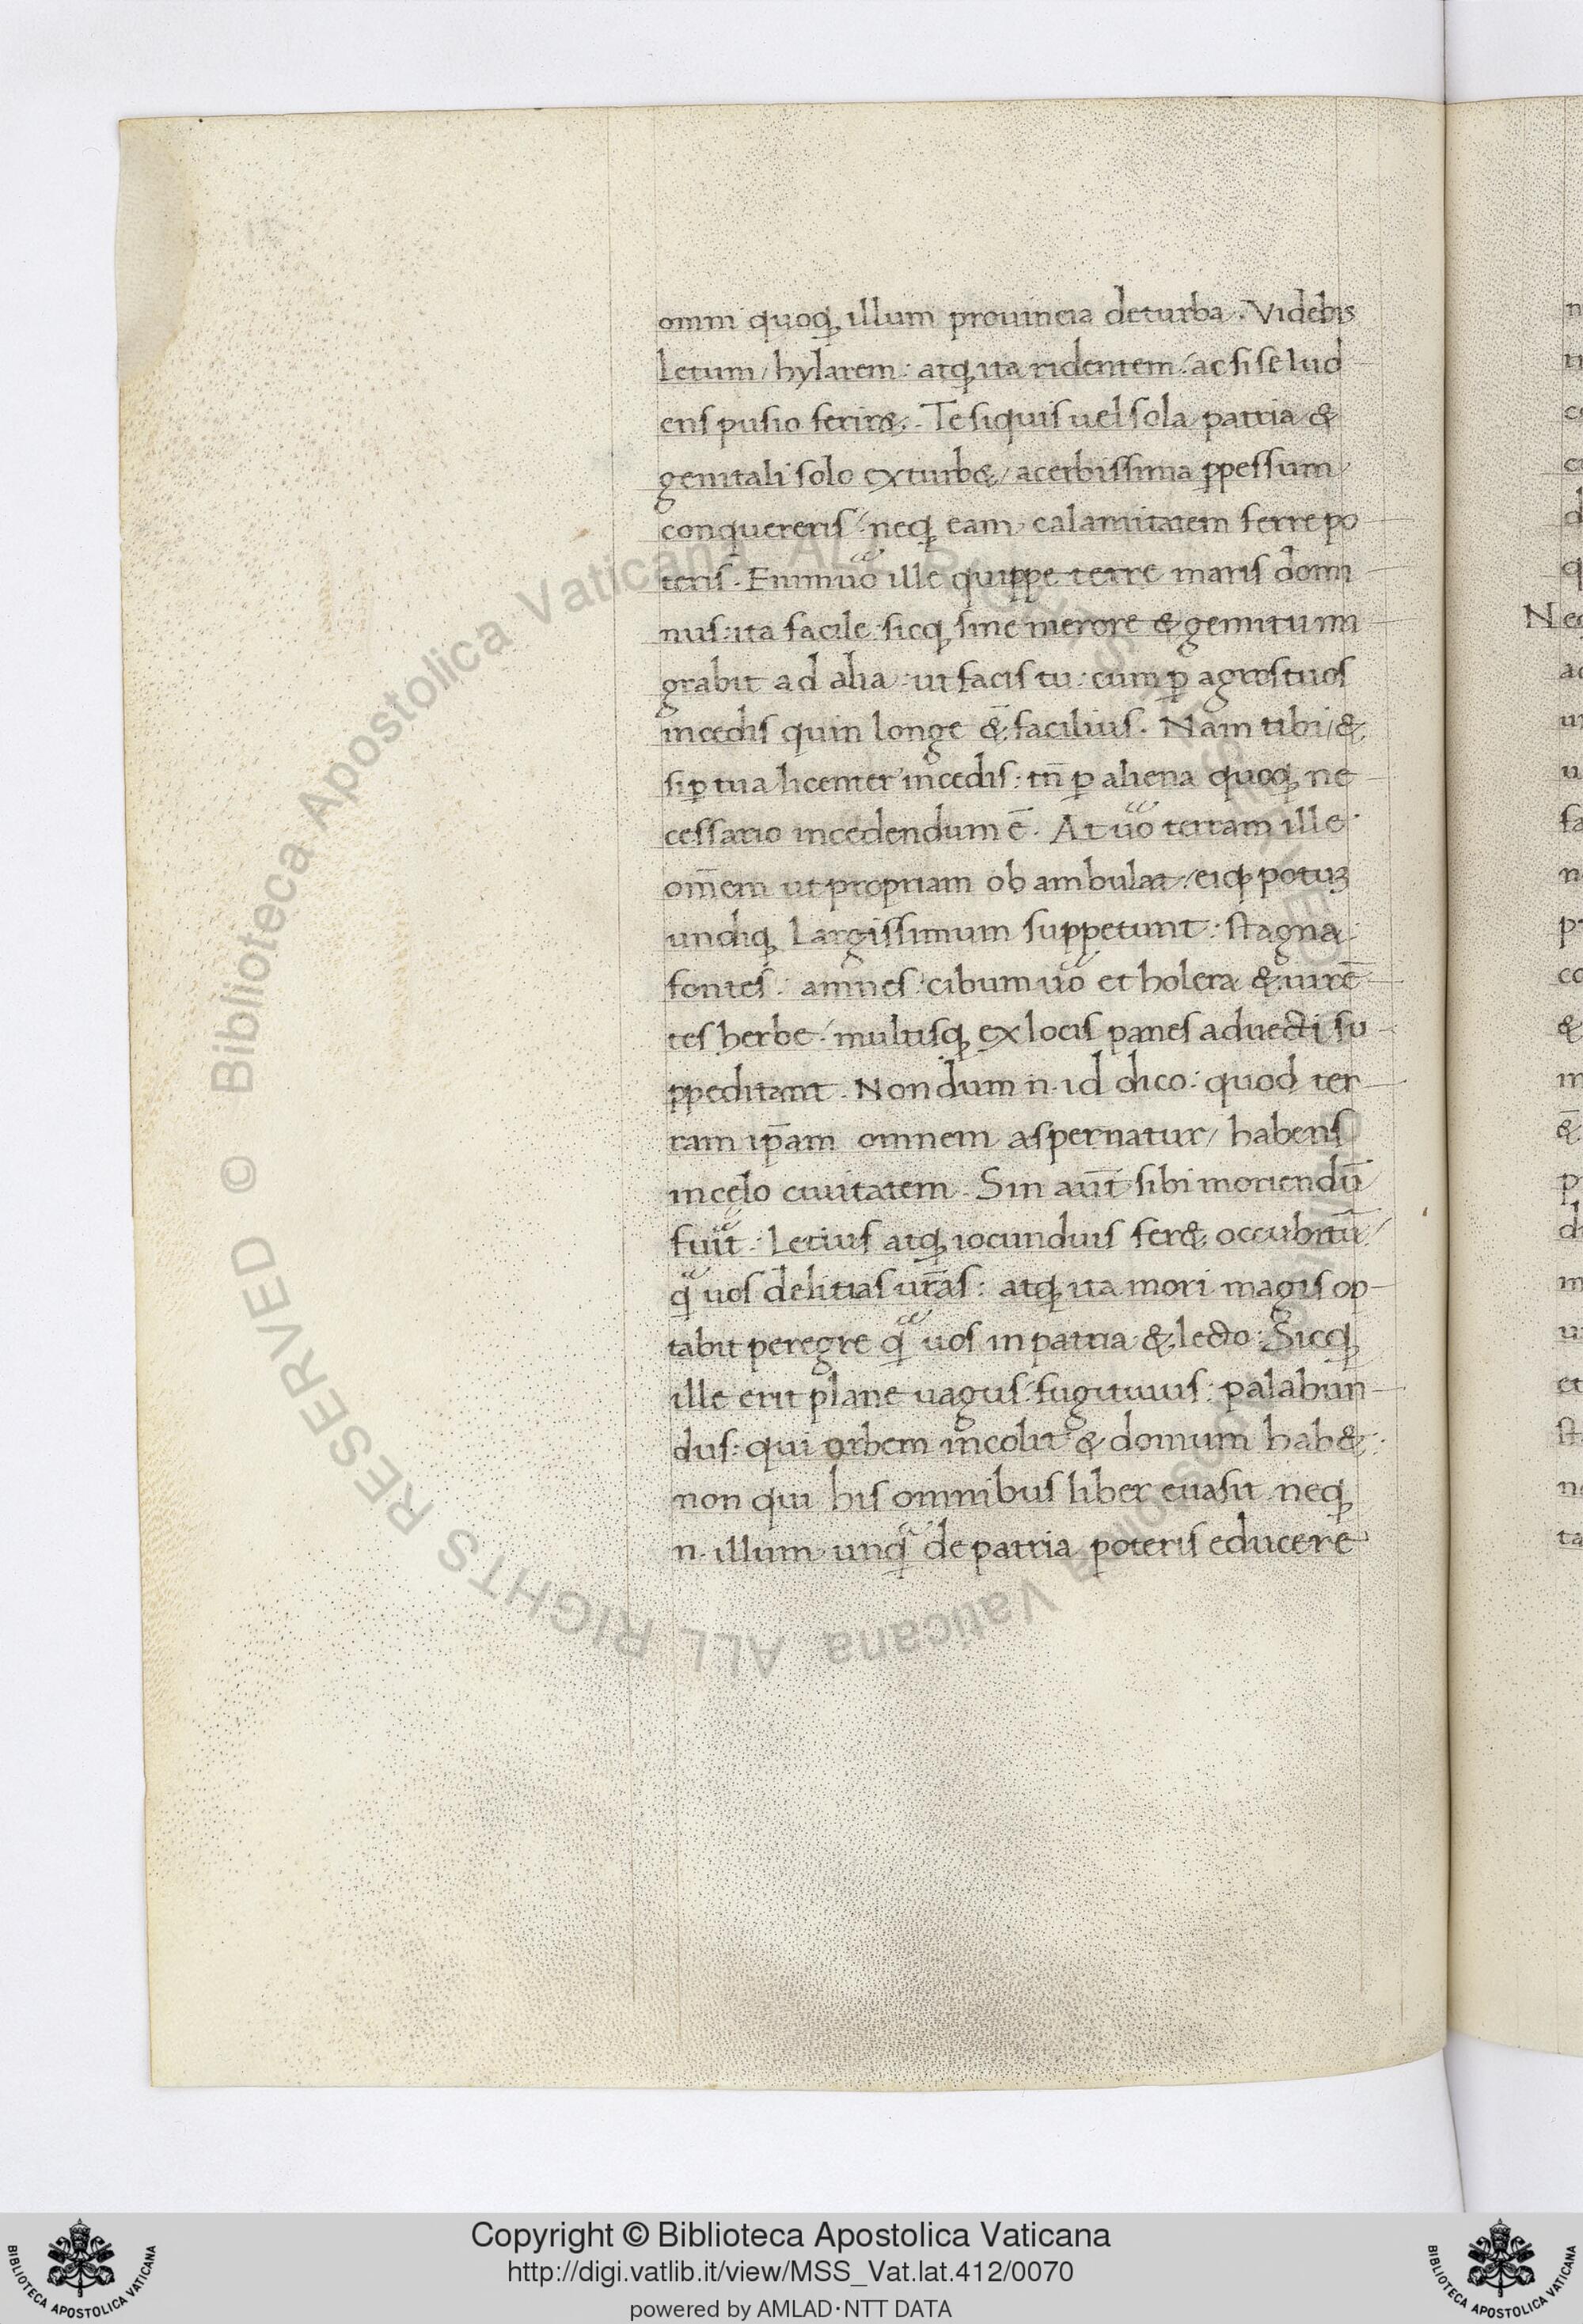 omni quoqꝫ illum prouincia deturba. Videbis
letum/ hylarem: atqꝫ ita ridentem: ac si se lud
ens pusio ferir&. Te siquis uel sola patria &
genitali solo exturb&/ acerbissima ꝑpessum
conquereris/ neqꝫ eam calamitatem ferre po
teris. Enimuoᷓ ille quippe terre maris domi
nus: ita facile: sicqꝫ sine merore & gemitu mi
grabit ad alia: ut facis tu: cum ꝑ agros tuos
incedis quin longe &̄ facilius. Nam tibi/ &
si ꝑ tua licenter incedis: tn̄ ꝑ aliena quoqꝫ ne
cessario incedendum ē. At uoᷓ terram ille
om̄em ut propriam obambulat: eiqꝫ potuꝫ
undiqꝫ largissimum suppetunt: stagna:
fontes: amnes: cibum uoᷓ et holera & uirē
tes herbe: multisqꝫ ex locis panes aduecti su
ppeditant. Nondum n. id dico: quod ter
ram ip̄am omnem aspernatur/ habens
in cęlo ciuitatem. Sin aūt sibi moriendū
fuitᷓ: letius atqꝫ iocunduis fer& occubitū/
qᷓ uos delitias ur̄as: atqꝫ ita mori magis op
tabit peregre qᷓ uos in patria & lecto: Sicqꝫ
ille erit plane uagus: fugitiuus: palabun
dus: qui orbem incolit & domum hab&:
non qui his omnibus liber euasit neqꝫ
n. illum unqᷓ de patria poteris educere
Copyright © Biblioteca Apostolica Vaticana
http://digi.vatlib.it/view/MSS_Vat.lat.412/0070
powered by AMLAD·NTT DATA